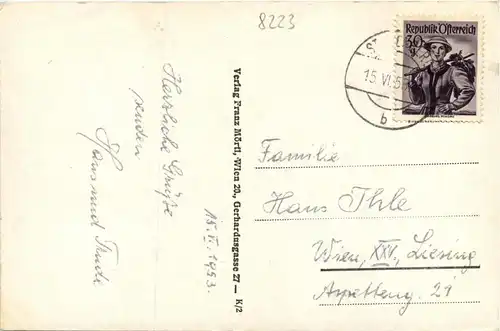 8223
REPUBLIK ÖSTERREICH
30
g
15. VI. 5
b
Herzliche Grüße
senden
Hans und Trude
15.VI.1953.
Verlag Franz Mörtl, Wien 20., Gerhardusgasse 27 — K/2
Familie
Hans Ihle
Wien, XXV., Liesing
29